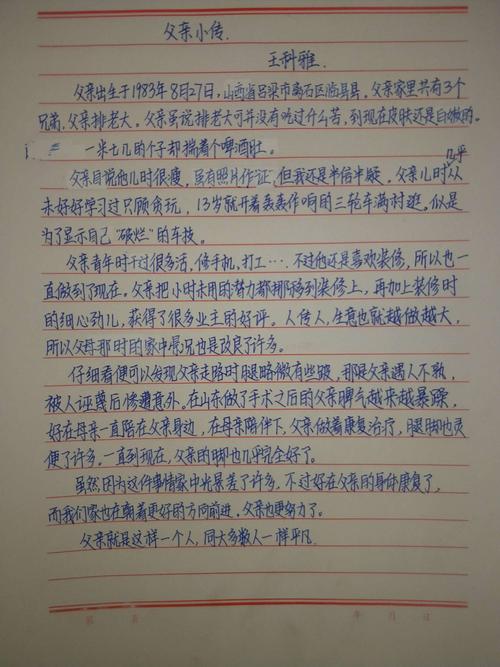 父亲小传.
王科雅.
父亲出生于1983年8月27日,山西省吕梁市离石区临县县,父亲家里共有3个
兄弟,父亲排老大。父亲虽说排老大可并没有吃过什么苦,到现在皮肤还是白嫩的。
一米七几的个子却揣着个啤酒肚。
父亲自说他儿时很瘦,虽有照片作证,但我还是半信半疑。父亲儿时几乎从
未好好学习过只顾贪玩,13岁就开着轰轰作响的三轮车满村逛。似是
为了显示自己“破烂”的车技。
父亲青年时干过很多活,修手机,打工….不过他还是喜欢装修,所以也一
直做到了现在。父亲把小时未用的努力都挪移到装修上,再加上装修时
的细心劲儿,获得了很多业主的好评。人传人,生意也就越做越大,
所以父母那时的家中景况也是改良了许多。
仔细看便可以发现父亲走路时腿略微有些跛,那是父亲遇人不熟,
被人诬蔑后修遭意外。在山东做了手术之后的父亲脾气越来越暴躁,
好在母亲一直陪在父亲身边,在母亲陪伴下,父亲做着康复治疗,腿脚也灵
便了许多。一直到现在,父亲的脚也几乎完全好了。
虽然因为这件事情家中光景差了许多,不过好在父亲的身体康复了,
而我们家也在朝着更好的方向前进。父亲也更努力了。
父亲就是这样一个人,同大多数人一样平凡.
第 页 年 月 日